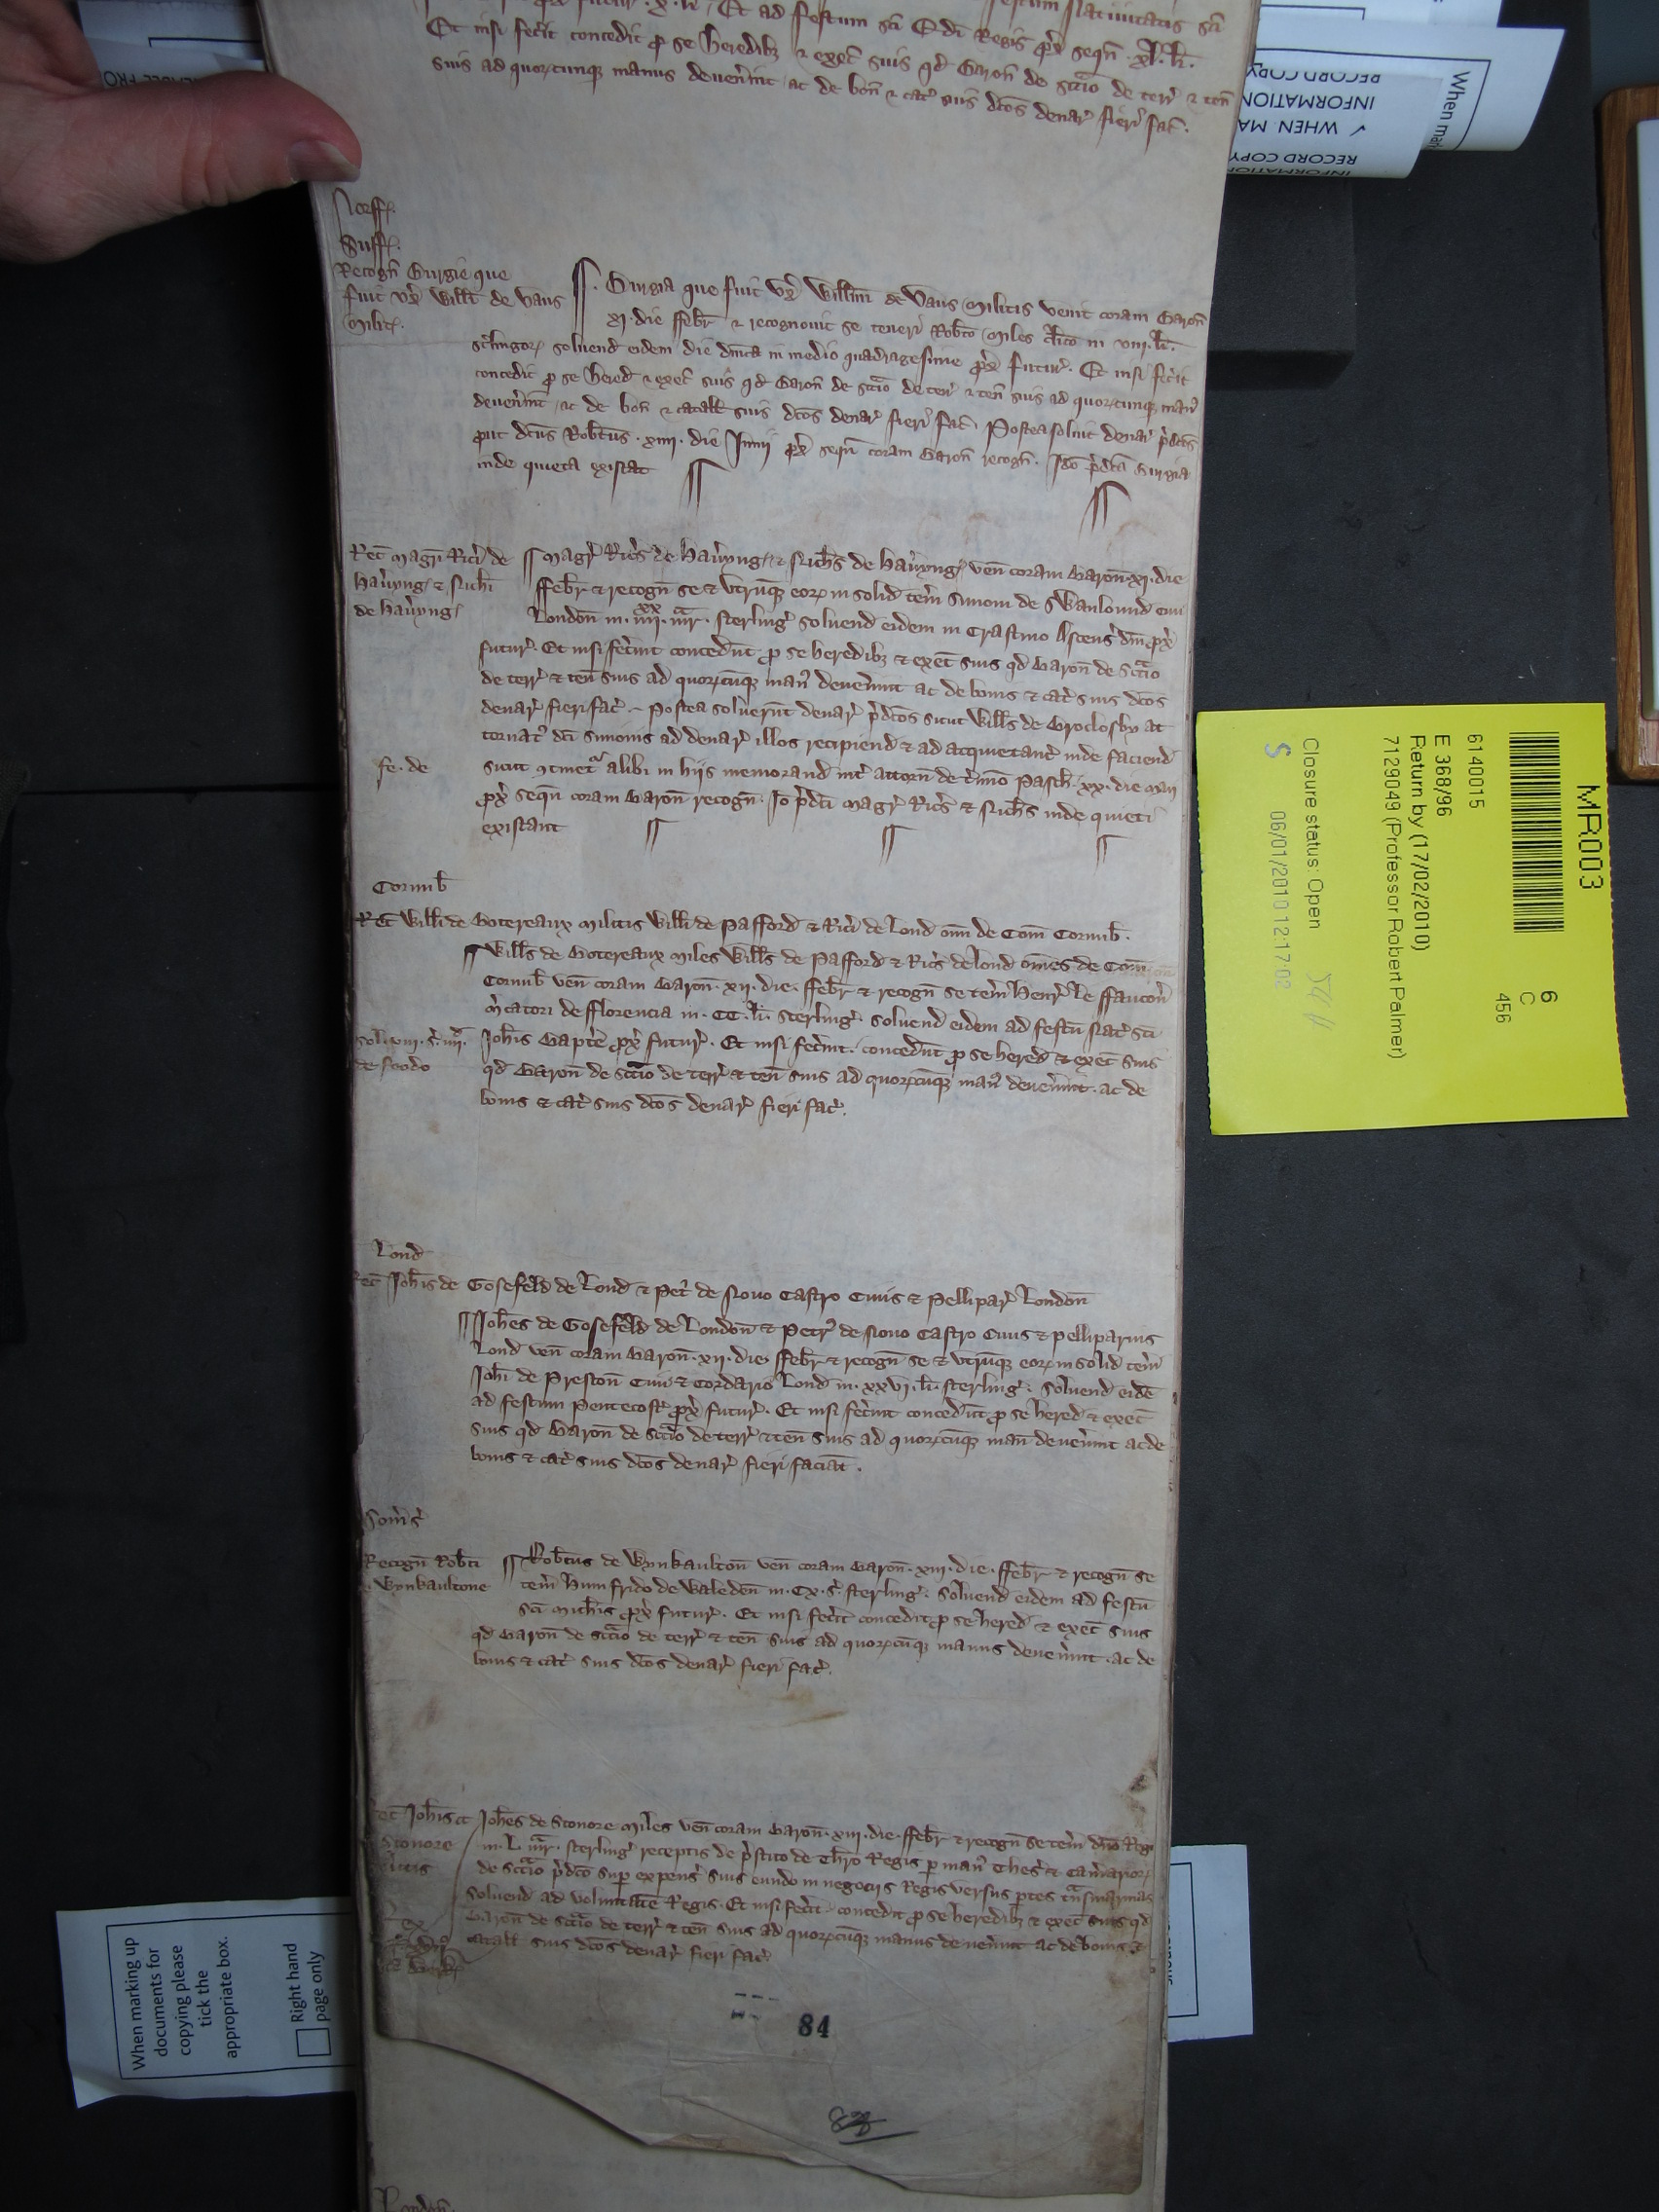 Et nisi fecit concedit p se heredibz & exec suis qd Baron de sccio de terr & ten
suis ad quorcunque manus devenint ac de bon & cat suis dcos denar fieri fac.
Norff.
Suff.
Recogn Burgie que
fuit ux Willi de Vaus
milit.
Burgia que fuit ux Willmi de Vaus militis venit coram Baron
xi. die ffebr & recognovit se teneri Robto Miles clico in viii. li.
sterlingor solvend eidem die dnica in medio quadragesime px futur. Et nisi fecit
concedit p se hered & exec suis qd Baron de sccio de terr & ten suis ad quorcunque man
devenint ac de bon & catall suis dcos denar fieri fac. Postea solvit denar pdcos
put dcus Robtus. xiiii. die Junii px sequn coram Baron recogn. Ido pdca Burgia
inde quieta existat
Rec magri Rici de
Haveryng & Nichi
de Haveryng
Magr Rics de Haveryng & Nichs de Haveryng ven coram Baron xi. die
ffebr & recogn se & utrumque eor in solid teneri Simoni de Swanlound civi
London in iiii xx mar. sterling solvend eidem in Crastino Ascens dni px
futur. Et nisi fecint concedunt p se heredibz & exec suis qd Baron de sccio
de terr & ten suis ad quorcumque man devenint ac de bonis & cat suis dcos
denar fieri fac. Postea solverunt denar pdcos sicut Wills de Broclosby at
tornat dci Simonis ad denar illos recipiend & ad acquietanc inde faciend
fe. de
sicut continet alibi in hijs memorand int attorn de tmino Pasch. xx. die Maii
px sequn coram Baron recogn. Io pdci magr Rics & Nichs inde quieti
existant
Cornub
Rec Willi de Botereaux militis Willi de Pafford & Rici de Lond omn de Com Cornub.
Wills de Botereaux miles Wills de Pafford & Rics de Lond omes de Com
Cornub ven coram Baron. xii. die. ffebr & recogn se teneri Henr le ffaucon
mcatori de fflorencia in. CC. li. sterling. solvend eidem ad festu Nat sci
Johis Bapte px futur. Et nisi fecint. concedunt p se hered & exec suis
qd Baron de sccio de terr & ten suis ad quorcumque man devenint. ac de
bonis & cat suis dcos denar fieri fac.
Lond
Rec Johis de Gosefeld de Lond & Pet de Novo Castro Civis & Pellipar London
Johes de Gosefeld de London & Petr de Novo Castro Civis & pelliparius
Lond ven coram Baron. xii. die. ffebr & recogn se & utrumque eor in solid teneri
Johi de Preston Civi & Cordario Lond in. xxvi. li. sterling. solvend eide
ad festum Pentecost px futur. Et nisi fecint concedunt p se hered & exec
suis qd Baron de sccio de terr & ten suis ad quorcumque man devenint ac de
bonis & cat suis dcos denar fieri faciat.
Somers
Recogn Robti
Wynkaultone
Robtus de Wynkaulton ven coram Baron. xiii. die. ffebr & recogn se
teneri Humfrido de Waleden in. CX. s. sterling. solvend eidem ad festu
sci Michis px futur. Et nisi fecit concedit p se hered & exec suis
qd Baron de sccio de terr & ten suis ad quorcumque manus devenint. ac de
bonis & cat suis dcos denar fieri fac.
Rec Johis de
Stonore
Johes de Stonore miles ven coram Baron. xiii. die. ffebr & recogn se teneri dno Regi
in. L. mar. sterling receptis de pstito de Thro Regis p man Thes & Camarior
de sccio pdco sup expens suis eundo in negociis Regis versus ptes tnsmarinas
solvend ad voluntate Regis. Et nisi fecit. concedit p se heredibz & exec suis qd
Baron de sccio de terr & ten suis ad quorcumque manus devenint ac de bonis &
catall suis dcos denar fieri fac.
84
London.
MR003
6
C
456
6140015
E 368/96
Return by (17/02/2010)
7129049 (Professor Robert Palmer)
Closure status: Open
06/01/2010 12:17:02
S
When marking up
documents for
copying please
tick the
appropriate box.
Right hand
page only
RECORD COPY
INFORMATION
✓ WHEN MA
RECORD COPY
INFORMATION
When mar